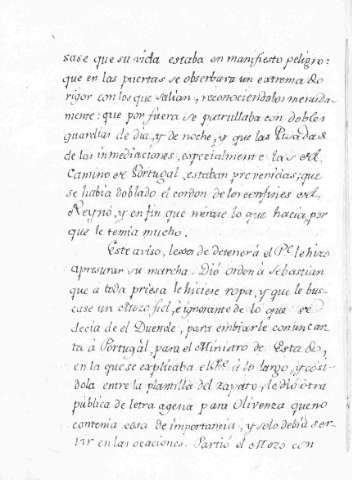 sase que su vida estaba en manifiesto peligro:
que en las puertas se observaba un extremado
rigor con los que salian, reconociendolos menuda-
mente: que por fuera se patrullaba con dobles
guardias de dia, y de noche, y que las Posadas
de las inmediaciones, especialmente las del
Camino de Portugal, estaban prevenidas; que
se habia doblado el cordon de los confines del
Reyno, y en fin que mirase lo que hacia, por
que le temia mucho.
Este aviso, lexos de detener á el Pe. le hizo
apresurar su marcha. Dió orden á Sebastian
que á toda priesa le hiciese ropa, y que le bus-
case un Mozo fiel, é ignorante de lo que se
decia de el Duende, para embiarle con una car-
ta á Portugál, para el Ministro de Estado,
en la que se explicaba el Pe. á lo largo, y cosi-
dola entre la plantilla del zapato, le dió otra
pública de letra agena para Olivenza que no
contenia cosa de importancia, y solo debia ser-
vir en las ocasiones. Partió el Mozo con